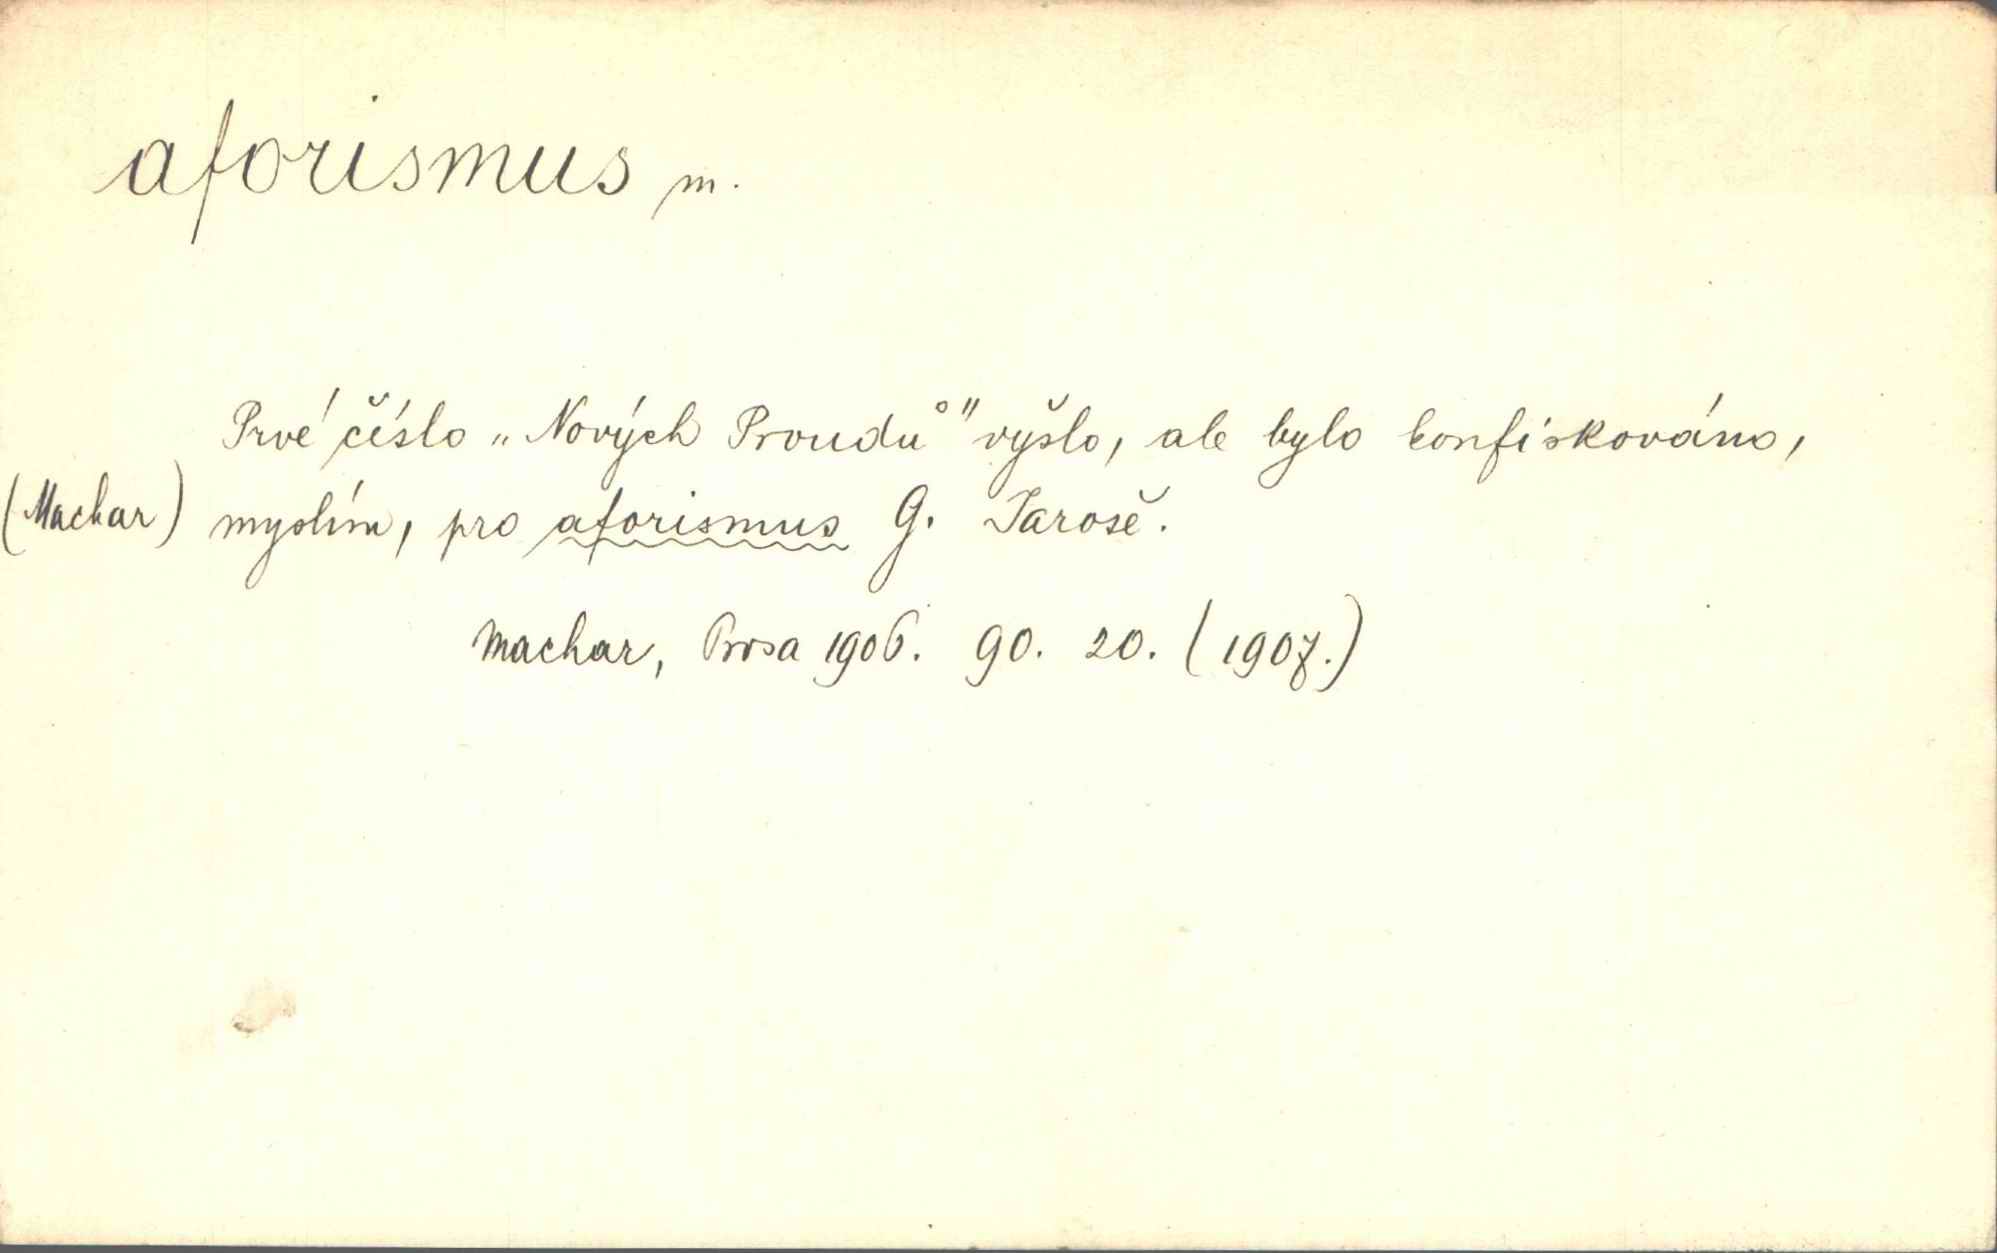 aforismus m.
Prvé číslo „Nových Proudů" vyšlo, ale bylo konfiskováno,
(Machar) myslím, pro aforismus G. Jaroše.
Machar, Prosa 1906. 90. 20. (1907.)